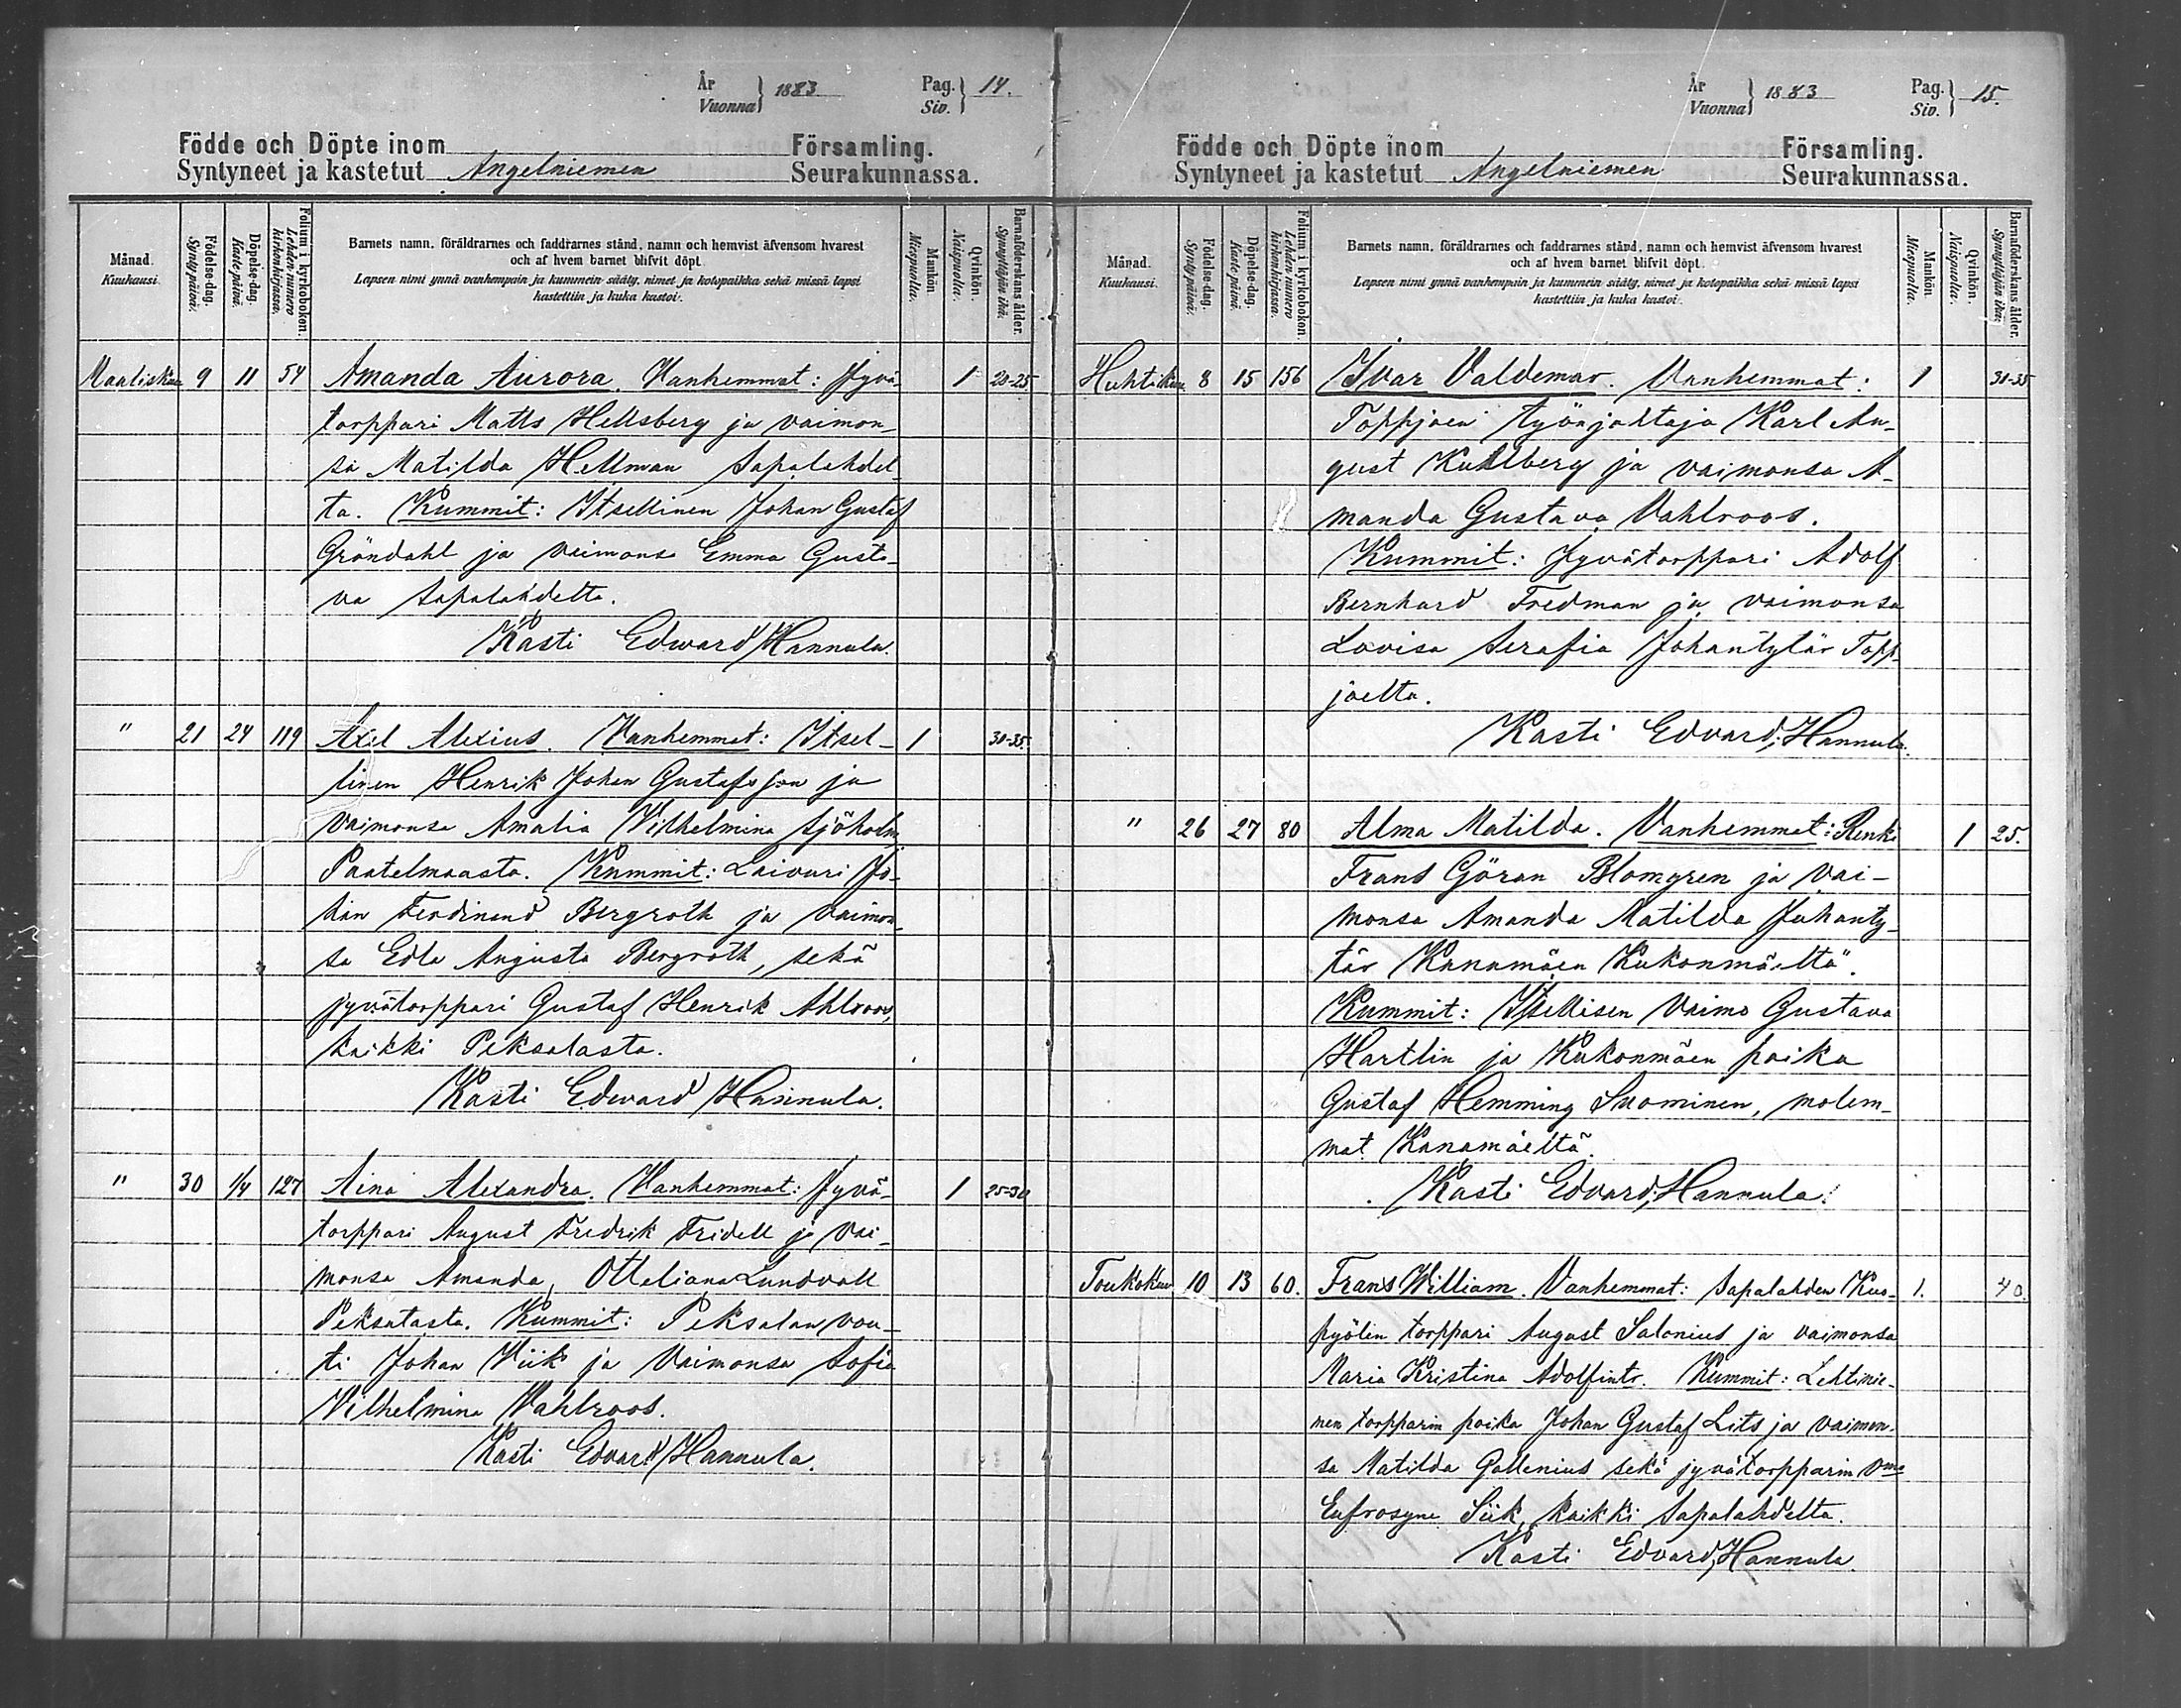 År
Vuonna } 1883
Pag.
Siv. } 14.
Födde och Döpte inom Församling.
Syntyneet ja kastetut Angelniemen Seurakunnassa.
Månad.
Kuukausi.
Födelse-dag.
Synty päivä.
Döpelse-dag.
Kaste päivä.
Folium i kyrkobokon.
Lehden numero
kirkonkirjassa.
Barnets namn, föräldrarnes och faddrarnes stånd, namn och hemvist äfvensom hvarest
och af hvem barnet blifvit döpt.
Lapsen nimi ynnä vanhempain ja kummein sääty, nimet ja kotopaikka sekä missä lapsi
kastettiin ja kuka kastoi.
Mankön.
Miespuolia.
Qvinkön.
Naispuolia.
Barnaföderskans ålder.
Synnyttäjän ikä.
Maalisku 9 11 54 Amanda Aurora. Vanhemmat: Jyvä- 1 20-25
torppari Matts Hellsberg ja vaimon-
sa Matilda Hellman Sapalahdel-
ta. Kummit: Itsellinen Johan Gustaf
Gröndahl ja vaimonsa Emma Gusta-
va Sapalahdelta.
Kasti Edward Hannula.
" 21 24 119 Axel Alexius. Vanhemmat: Itsel- 1 30-35
linen Henrik Johan Gustafsson ja
vaimonsa Amalia Vilhelmina Sjöholm
Paatelmaasta. Kummit: Laivuri Jo-
han Ferdinand Bergroth ja vaimon-
sa Edla Augusta Bergroth, sekä
jyvätorppari Gustaf Henrik Ahlroos,
kaikki Peksalasta.
Kasti Edward Hannula.
" 30 1/4 127 Aina Alexandra. Vanhemmat: Jyvä- 1 25-30
torppari August Fredrik Fridell ja vai-
monsa Amanda Ottaliana Lundvall
Peksalasta. Kummit: Peksalan vou-
ti Johan Viik ja vaimonsa Sofia
Vilhelmina Vahlroos.
Kasti Edvard Hannula.
År
Vuonna } 1883
Pag.
Siv. } 15.
Födde och Döpte inom Församling.
Syntyneet ja kastetut Angelniemen Seurakunnassa.
Månad.
Kuukausi.
Födelse-dag.
Synty päivä.
Döpelse-dag.
Kaste päivä.
Folium i kyrkobokon.
Lehden numero
kirkonkirjassa.
Barnets namn, föräldrarnes och faddrarnes stånd, namn och hemvist äfvensom hvarest
och af hvem barnet blifvit döpt.
Lapsen nimi ynnä vanhempain ja kummein sääty, nimet ja kotopaikka sekä missä lapsi
kastettiin ja kuka kastoi.
Mankön.
Miespuolia.
Qvinkön.
Naispuolia.
Barnaföderskans ålder.
Synnyttäjän ikä.
Huhtikuu 8 15 156 Ivar Valdemar. Vanhemmat: 1 30-35
Toppjoen työnjohtaja Karl Au-
gust Kuhlberg ja vaimonsa A-
manda Gustava Vahlroos.
Kummit: Jyvätorppari Adolf
Bernhard Fredman ja vaimonsa
Lovisa Serafia Johantytär Topp-
joelta.
Kasti Edvard Hannula.
" 26 27 80 Alma Matilda. Vanhemmat: Renki 1 25.
Frans Göran Blomgren ja vai-
monsa Amanda Matilda Juhanty-
tär Kanamäen Kukonmäeltä.
Kummit: Itsellisen vaimo Gustava
Hartlin ja Kukonmäen poika
Gustaf Hemming Suominen, molem-
mat Kanamäeltä.
Kasti Edvard Hannula.
Toukokuu 10 13 60. Frans William. Vanhemmat: Sapalahden Kuo- 1. 40.
pyölin torppari August Salonius ja vaimonsa
Maria Kristina Adolfintr. Kummit: Lehtinie-
men torpparin poika Johan Gustaf Lits ja vaimon-
sa Matilda Gallenius sekä jyvätorpparin vmo
Eufrosyne Siik, kaikki Sapalahdelta.
Kasti Edvard Hannula.